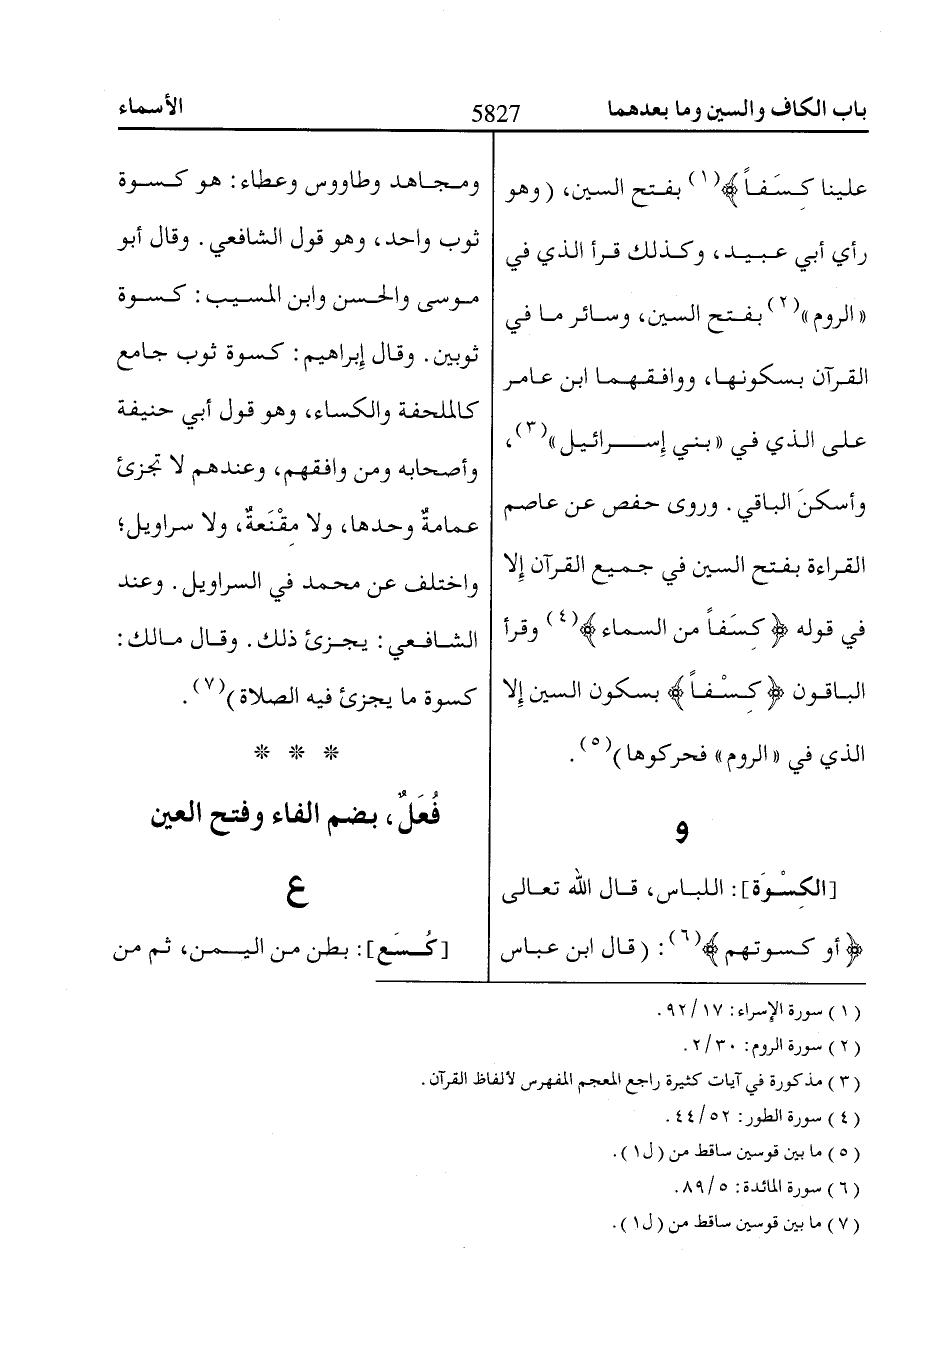 باب الكاف والسين وما بعدهما
5827
الأسماء
علينا كِسَفاً ﴾(١) بفتح السين، (وهو
رأي أبي عبيد، وكذلك قرأ الذي في
«الروم»(٢) بفتح السين، وسائر ما في
القرآن بسكونها، ووافقهما ابن عامر
على الذي في «بني إسرائيل»(٣)،
وأسكنَ الباقي. وروى حفص عن عاصم
القراءة بفتح السين في جميع القرآن إلا
في قوله ﴿ كِسَفاً من السماء ﴾(٤) وقرأ
الباقون ﴿ كِسْفاً ﴾ بسكون السين إلا
الذي في «الروم» فحركوها)(٥).
و
[الكِسْوَة]: اللباس، قال الله تعالى
﴿ أو كسوتهم ﴾(٦): (قال ابن عباس
ومجاهد وطاووس وعطاء: هو كسوة
ثوب واحد، وهو قول الشافعي. وقال أبو
موسى والحسن وابن المسيب: كسوة
ثوبين. وقال إبراهيم: كسوة ثوب جامع
كالملحفة والكساء، وهو قول أبي حنيفة
وأصحابه ومن وافقهم، وعندهم لا تجزئ
عمامةٌ وحدها، ولا مِقْنَعةٌ، ولا سراويل؛
واختلف عن محمد في السراويل. وعند
الشافعي: يجزئ ذلك. وقال مالك:
كسوة ما يجزئ فيه الصلاة)(٧).
* * *
فُعَلٌ، بضم الفاء وفتح العين
ع
[كُسَع]: بطن من اليمن، ثم من
(١) سورة الإسراء: ٩٢/١٧.
(٢) سورة الروم: ٢/٣٠.
(٣) مذكورة في آيات كثيرة راجع المعجم المفهرس لألفاظ القرآن.
(٤) سورة الطور: ٤٤/٥٢.
(٥) ما بين قوسين ساقط من (ل١).
(٦) سورة المائدة: ٨٩/٥.
(٧) ما بين قوسين ساقط من (ل١).